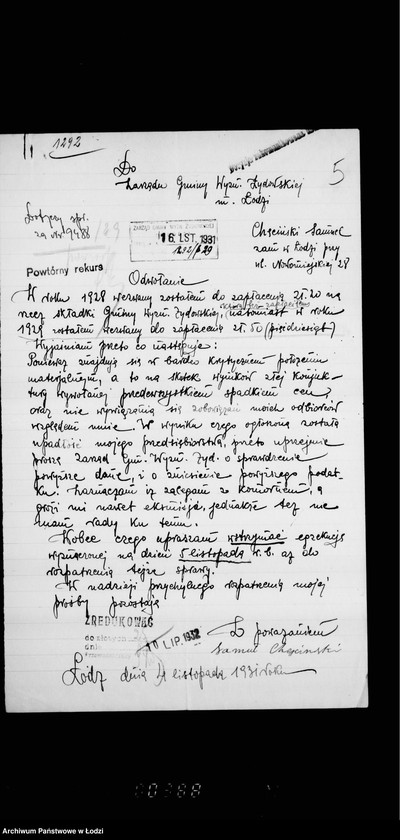 1292
5
Do
Zarządu Gminy Wyzn. Żydowskiej
m. Łodzi
Dotyczy spr.
za Nr 9488
16 LST. 1931
1292/6/29
Chęciński Samuel
zam w Łodzi przy
ul. Nowomiejskiej 28
Powtórny rekurs
Odwołanie
W roku 1928 wezwany zostałem do zapłacenia zł. 20 na
rzecz składki Gminy Wyzn. Żydowskiej, natomiast w roku
1928 zostałem wezwany do zapłacenia zł. 50 (pięćdziesiąt)
Wyjaśniam przeto co następuje:
Ponieważ znajduję się w bardzo krytycznem położeniu
materjalnym, a to na skutek wyników złej konjuk-
tury wywołanej przedewszystkiem spadkiem cen,
oraz nie wywiązania się zobowiązań moich odbiorców
względem mnie. W wyniku czego ogłoszona została
upadłość mojego przedsiębiorstwa, przeto uprzejmie
proszę Zarząd Gm. Wyzn. Żyd. o sprawdzenie
powyższe dane, i o zniesienie powyższego podat-
ku. Zaznaczam iż zalegam za komornem, a
grozi mi nawet eksmisja, jednakże też nie
mam rady ku temu.
Wobec czego upraszam wstrzymać egzekucję
wyznaczonej na dzień 5 listopada r. b. aż do
rozpatrzenia tejże sprawy.
W nadziei przychylnego rozpatrzenia mojej
prośby pozostaję
ZREDUKOWAĆ
do złotych
dnia
10 LIP. 1932
Z poważaniem
Samuel Chęciński
Łódź dnia 4 listopada 1931 roku
Archiwum Państwowe w Łodzi